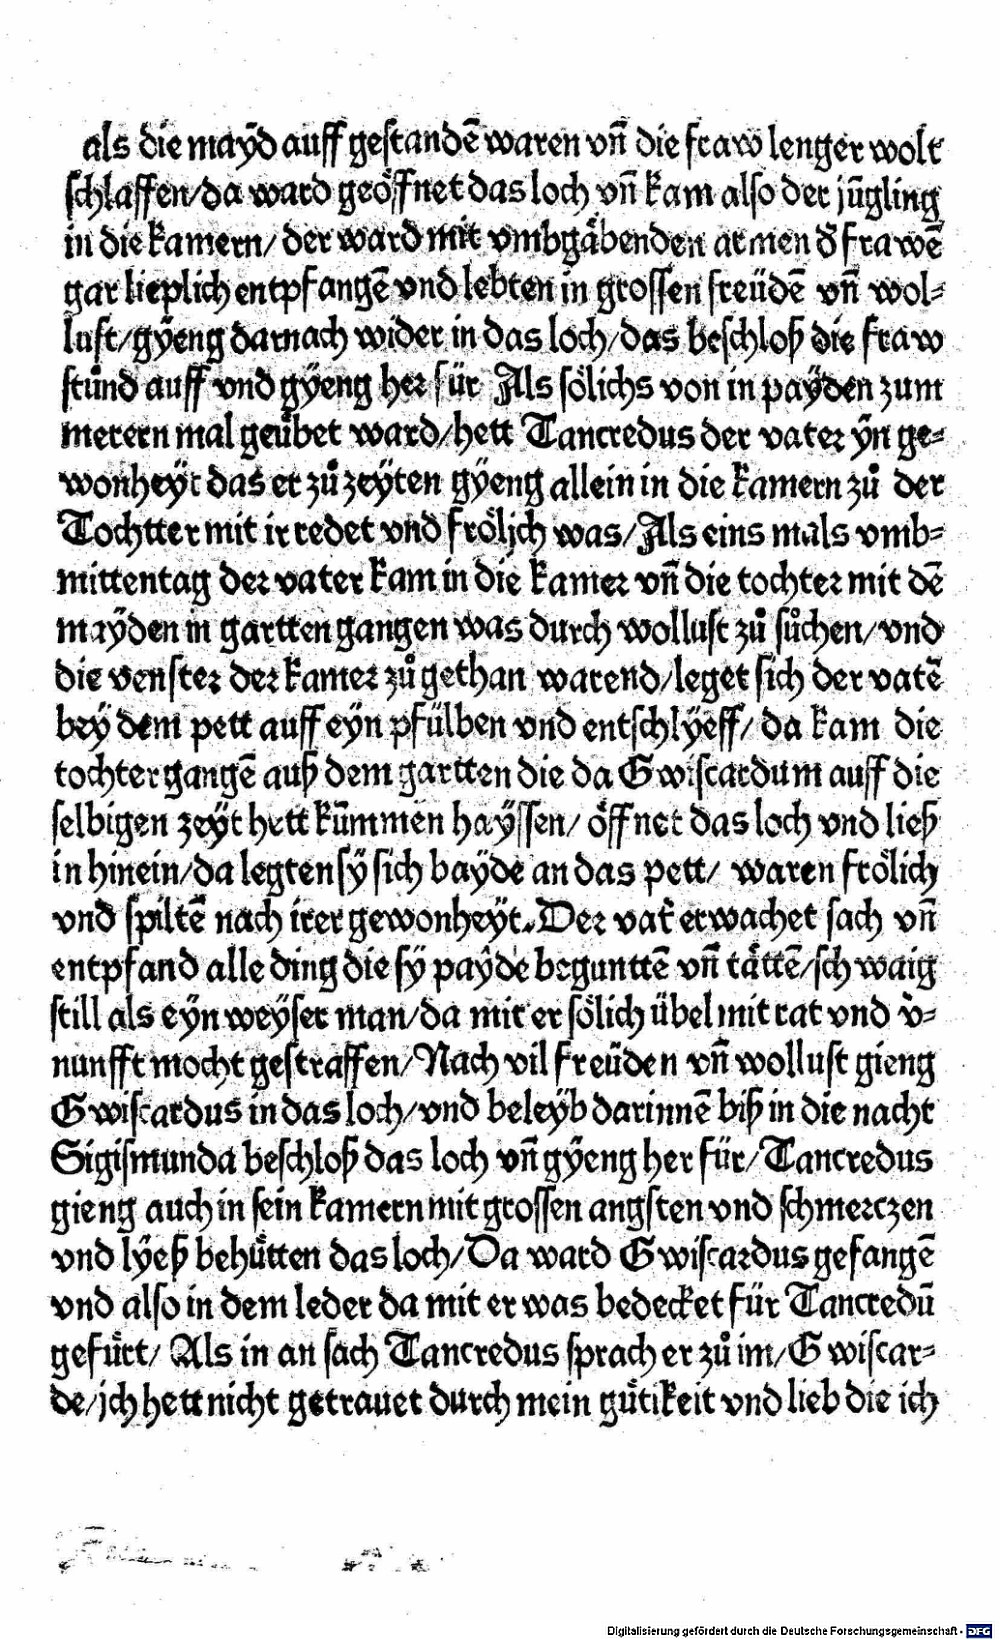 als die maÿd auff gestandē waren vn̄ die fraw lenger wolt
schlaffen/da ward geöffnet das loch vn̄ kam also der jūgling
in die kamern/ der ward mit vmbgäbenden armen d̕ frawē
gar lieplich entpfangē vnd lebten in grossen freüdē vn̄ wol⸗
lust/gÿeng darnach wider in das loch/das beschloß die fraw
stůnd auff vnd gÿeng her für Als sölichs von in paÿden zum
merern mal geübet ward/hett Tancredus der vater ÿn ge⸗
wonheÿt das er zů zeÿten gÿeng allein in die kamern zů der
Tochtter mit ir redet vnd frölich was/Als eins mals vmb⸗
mittentag der vater kam in die kamer vn̄ die tochter mit dē
maÿden in gartten gangen was durch wollust zů sůchen/vnd
die venster der kamer zů gethan warend/leget sich der vatē
beÿ dem pett auff eÿn pfülben vnd entschlÿeff/ da kam die
tochter gangē auß dem gartten die da Gwiscardum auff die
selbigen zeÿt hett kūmmen haÿssen/ öffnet das loch vnd ließ
in hinein/da legten sÿ sich baÿde an das pett/ waren frölich
vnd spiltē nach irer gewonheÿt. Der vat̕ erwachet sach vn̄
entpfand alle ding die sÿ paÿde beguntē vn̄ tättē/schwaig
still als eÿn weÿser man/da mit er sölich übel mit rat vnd v̕⸗
nunfft mocht gestraffen/Nach vil freüden vn̄ wollust gieng
Gwiscardus in das loch/vnd beleÿb darinnē biß in die nacht
Sigismunda beschloß das loch vn̄ gÿeng her für/Tancredus
gieng auch in sein kamern mit grossen angsten vnd schmerczen
vnd lÿeß behütten das loch/Da ward Gwiscardus gefangē
vnd also in dem leder da mit er was bedecket für Tancredū
gefürt/ Als in an sach Tancredus sprach er zů im/Gwiscar⸗
de/ich hett nicht getrauet durch mein gütikeit vnd lieb die ich
Digitalisierung gefördert durch die Deutsche Forschungsgemeinschaft - DFG